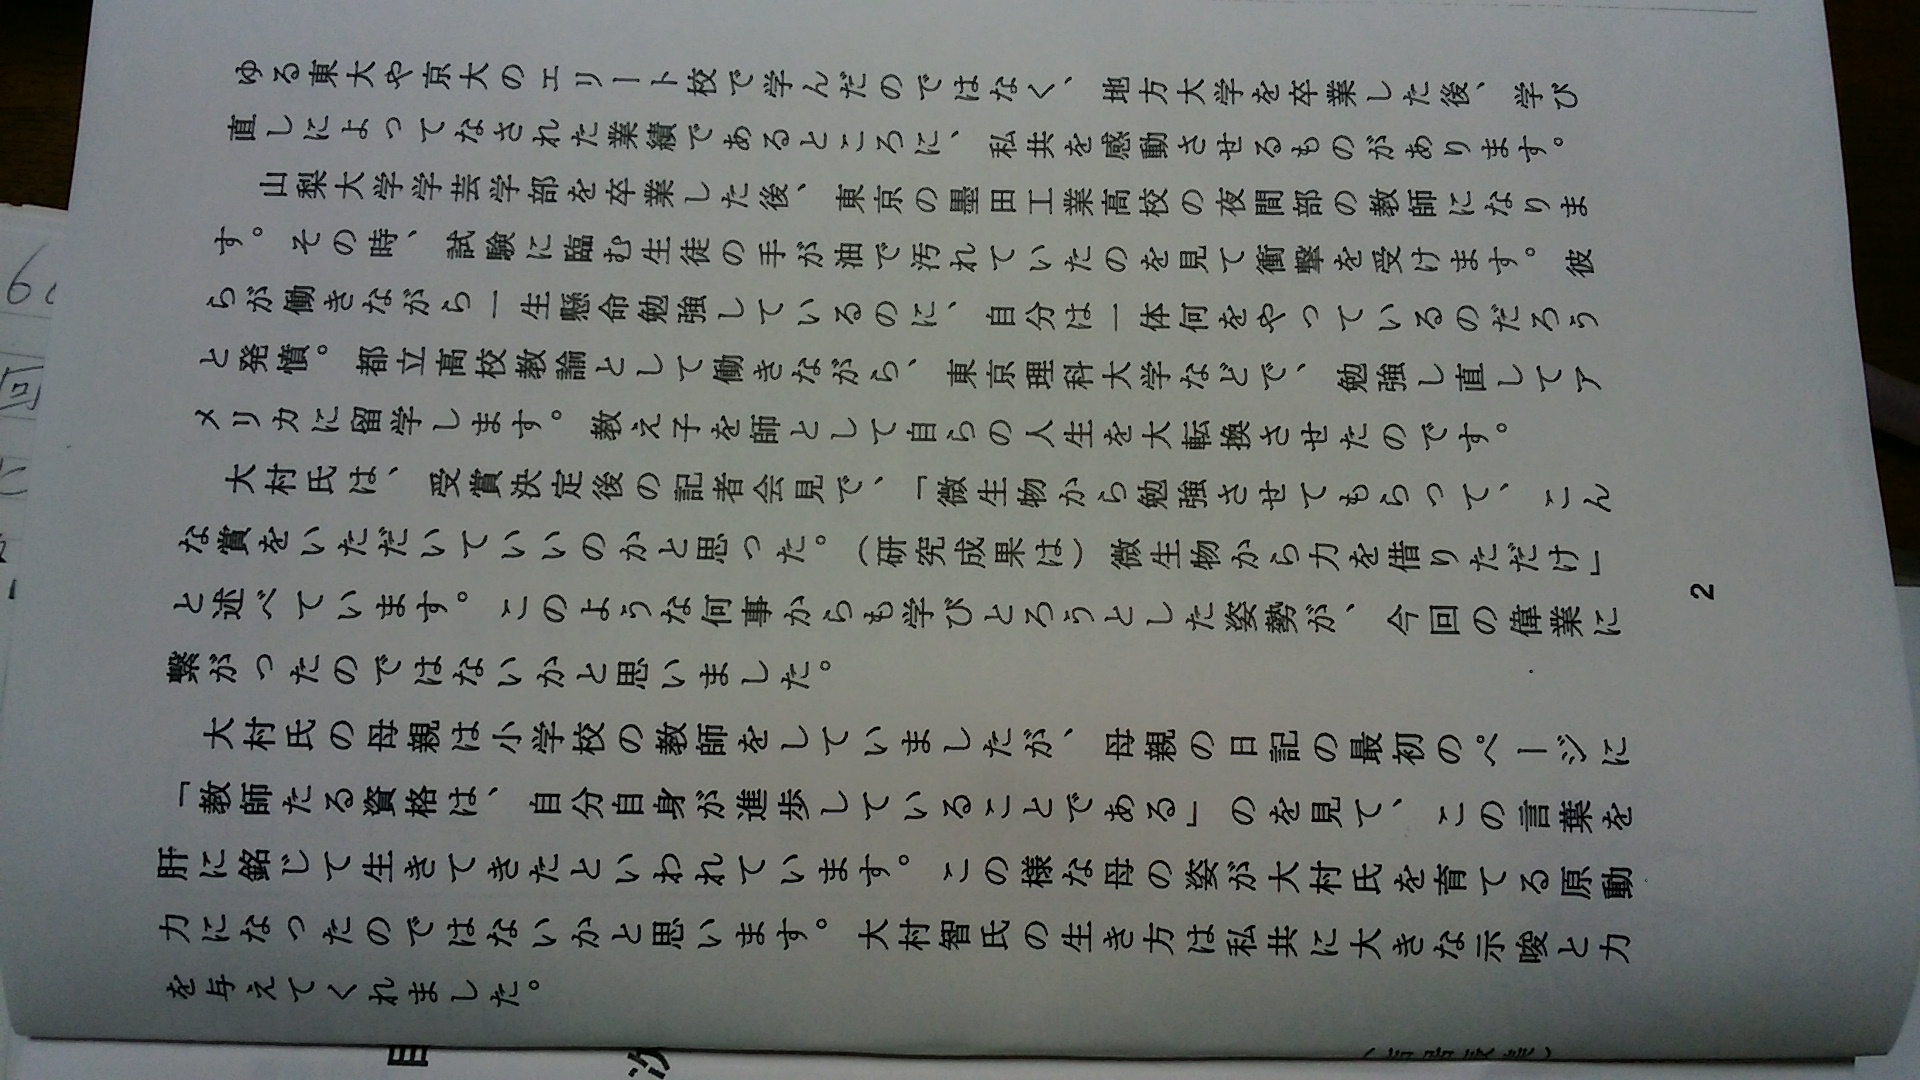 ゆる東大や京大のエリート校で学んだのではなく、地方大学を卒業した後、学び
直しによってなされた業績であるところに、私共を感動させるものがあります。
山梨大学学芸学部を卒業した後、東京の墨田工業高校の夜間部の教師になりま
す。その時、試験に臨む生徒の手が油で汚れていたのを見て衝撃を受けます。彼
らが働きながら一生懸命勉強しているのに、自分は一体何をやっているのだろう
と発憤。都立高校教論として働きながら、東京理科大学などで、勉強し直してア
メリカに留学します。教え子を師として自らの人生を大転換させたのです。
大村氏は、受賞決定後の記者会見で、「微生物から勉強させてもらって、こん
な賞をいただいていいのかと思った。（研究成果は）微生物から力を借りただけ」
と述べています。このような何事からも学びとろうとした姿勢が、今回の偉業に
繋がったのではないかと思いました。
大村氏の母親は小学校の教師をしていましたが、母親の日記の最初のページに
「教師たる資格は、自分自身が進歩していることである」のを見て、この言葉を
肝に銘じて生きてきたといわれています。この様な母の姿が大村氏を育てる原動
力になったのではないかと思います。大村智氏の生き方は私共に大きな示唆と力
を与えてくれました。
2
目
次